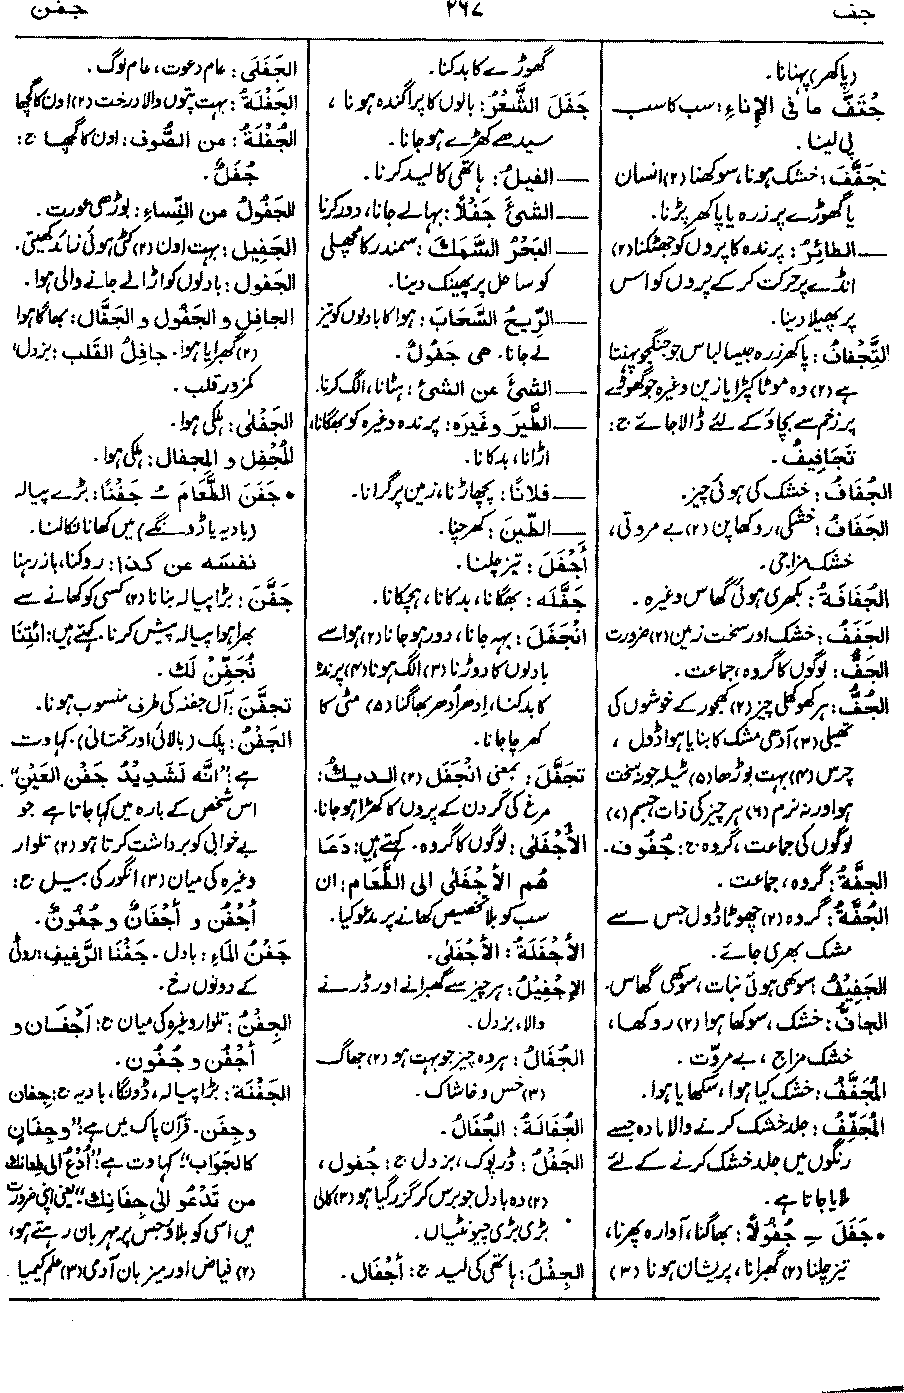 جف
۲۶۷
جفن
(پاکھر) پہنانا.
جُتَفَّ ما في الإناءِ: سب کا سب
پی لینا.
تجَفَّفَ: خشک ہونا، سوکھنا (۲) انسان
یا گھوڑے پر زرہ یا پاکھر پڑنا.
ــــ الطائِرُ: پرندہ کا پروں کو جھٹکنا (۲)
انڈے پر حرکت کر کے پروں کو اس
پر پھیلا دینا.
التِّجْفافُ: پاکھر، زرہ جیسا لباس جو جنگجو پہنتا
ہے (۲) وہ موٹا کپڑا یا زین وغیرہ جو گھوڑے
پر زخم سے بچاؤ کے لئے ڈالا جائے ج:
تَجَافِيفُ.
الجُفَافُ: خشک کی ہوئی چیز.
الجَفَافُ: خشکی، روکھا پن (۲) بے مروتی،
خشک مزاجی.
الجُفافَةُ: بکھری ہوئی گھاس وغیرہ.
الجَفَفُ: خشک اور سخت زمین (۲) ضرورت
الجَفُّ: لوگوں کا گروہ، جماعت.
الجُفُّ: ہر کھوکھلی چیز (۲) کھجور کے خوشوں کی
تھیلی (۳) آدھی مشک کا بنایا ہوا ڈول،
چرس (۴) بہت بوڑھا (۵) ٹیلہ جو نہ سخت
ہو اور نہ نرم (۶) ہر چیز کی ذات جسم (۷)
لوگوں کی جماعت، گروہ ج: جُفُوف.
الجَفَّةُ: گروہ، جماعت.
الجُفَّةُ: گروہ (۲) چھوٹا ڈول جس سے
مشک بھری جائے.
الجَفِيْفُ: سوکھی ہوئی نبات، سوکھی گھاس.
الجافُّ: خشک، سوکھا ہوا (۲) روکھا،
خشک مزاج، بے مروّت.
المُجَفَّفُ: خشک کیا ہوا، سکھایا ہوا.
المُجَفِّفُ: جلد خشک کرنے والا مادہ جسے
رنگوں میں جلد خشک کرنے کے لئے
ملایا جاتا ہے.
• جَفَلَ ـِ جُفُولًا: بھاگنا، آوارہ پھرنا،
تیز چلنا (۲) گھبرانا، پریشان ہونا (۳)
گھوڑے کا بدکنا.
جَفَلَ الشَّعْرُ: بالوں کا پراگندہ ہونا،
سیدھے کھڑے ہو جانا.
ــــ الفيلُ: ہاتھی کا لید کرنا.
ــــ الشيئَ جَفْلًا: بہا لے جانا، دور کرنا
ــــ البَحْرُ السَّمَكَ: سمندر کا مچھلی
کو ساحل پر پھینک دینا.
ــــ الرِّيحُ السَّحَابَ: ہوا کا بادلوں کو تیز
لے جانا. هي جَفُولٌ.
ــــ الشيئَ عن الشيئ: ہٹانا، الگ کرنا.
ــــ الطَّيرَ وغَيرَه: پرندہ وغیرہ کو بھگانا،
اڑانا، بدکانا.
ــــ فلانًا: پچھاڑنا، زمین پر گرانا.
ــــ الطِّينَ: کھرچنا.
أَجْفَلَ: تیز چلنا.
جَفَّلَه: بھگانا، بدکانا، ہچکانا.
انْجَفَلَ: بہہ جانا، دور ہو جانا (۲) ہوا سے
بادلوں کا دوڑنا (۳) الگ ہونا (۴) پرندہ
کا بدکنا، ادھر اُدھر بھاگنا (۵) مٹی کا
کھرچا جانا.
تجَفَّلَ: بمعنی انْجَفَلَ (۲) الديكُ:
مرغ کی گردن کے پروں کا کھڑا ہو جانا.
الأَجْفَلٰى: لوگوں کا گروہ. کہتے ہیں: دَعَا
هُم الأَجْفَلٰى الى الطَّعَام: ان
سب کو بلا تخصیص کھانے پر مدعو کیا.
الأَجْفَلَةُ: الأَجْفَلٰى.
الإِجْفِيْلُ: ہر چیز سے گھبرانے اور ڈرنے
والا، بزدل.
الجُفَالُ: ہر وہ چیز جو بہت ہو (۲) جھاگ
(۳) خس و خاشاک.
الجُفَالَةُ: الجُفَالُ.
الجَفْلُ: ڈرپوک، بزدل ج: جُفول،
(۲) وہ بادل جو برس کر گزر گیا ہو (۳) کالی
بڑی بڑی چیونٹیاں.
الجِفْلُ: ہاتھی کی لید ج: أَجْفَال.
الجَفَلَى: عام دعوت، عام لوگ.
الجَفْلَةُ: بہت پتوں والا درخت (۲) اون کا گچھا
الجُفْلَةُ: من الصُّوف: اون کا گچھا ج:
جُفَلٌ.
الجَفُولُ من النِّساءِ: بوڑھی عورت.
الجَفِيل: بہت اون (۲) کٹی ہوئی زائد کھیتی.
الجَفول: بادلوں کو اڑا لے جانے والی ہوا.
الجافِل و الجَفُول و الجَفَّال: بھاگا ہوا
(۲) گھبرایا ہوا. جافِلُ القَلب: بزدل،
کمزور قلب.
الجَفْلٰى: ہلکی ہوا.
المُجْفِل و المِجفال: ہلکی ہوا.
• جَفَنَ الطَّعَامَ ـُ جَفْنًا: بڑے پیالہ
(بادیہ یا ڈونگے) میں کھانا نکالنا.
نفسَه عن كذا: روکنا، باز رہنا
جَفَّنَ: بڑا پیالہ بنانا (۲) کسی کو کھانے سے
بھرا ہوا پیالہ پیش کرنا. کہتے ہیں: ائتِنَا
نُجَفِّنْ لَكَ.
تجفَّنَ: آل جفنہ کی طرف منسوب ہونا.
الجَفْنُ: پلک (بالائی اور تحتانی) کہاوت
ہے: "انَّه لَشَدِيْدُ جَفْنِ العَيْنِ"
اس شخص کے بارہ میں کہا جاتا ہے جو
بے خوابی کو برداشت کرتا ہو (۲) تلوار
وغیرہ کی میان (۳) انگور کی بیل ج:
أَجْفُن و أَجْفَانٌ و جُفُونٌ.
جَفْنُ المَاءِ: بادل. جَفْنَا الرَّغيفِ: روٹی
کے دونوں رخ.
الجِفْنُ: تلوار وغیرہ کی میان ج: أَجْفَان و
أَجْفُن و جُفُون.
الجَفْنَة: بڑا پیالہ، ڈونگا، بادیہ ج: جِفان
و جِفَن. قرآن پاک میں ہے: "و جِفَانٍ
كالجَوَاب" کہاوت ہے: "أُدْعُ الى طِعَانِك
من تَدْعُو الى جِفَانِك" یعنی اپنی ضرورت
میں اسی کو بلاؤ جس پر مہربان رہتے ہو،
(۲) فیاض اور میزبان آدمی (۳) علم کیمیا